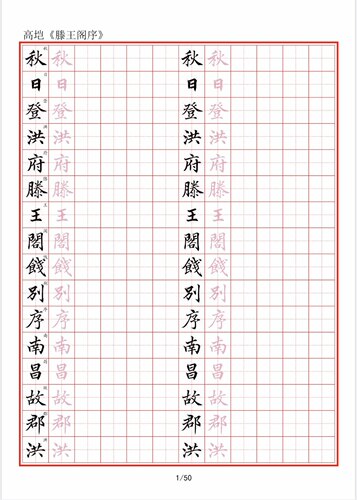 高垲《滕王阁序》
秋日登洪府滕王閣餞別序南昌故郡洪
秋日登洪府滕王閣餞別序南昌故郡洪
秋日登洪府滕王閣餞別序南昌故郡洪
秋日登洪府滕王閣餞別序南昌故郡洪
1/50